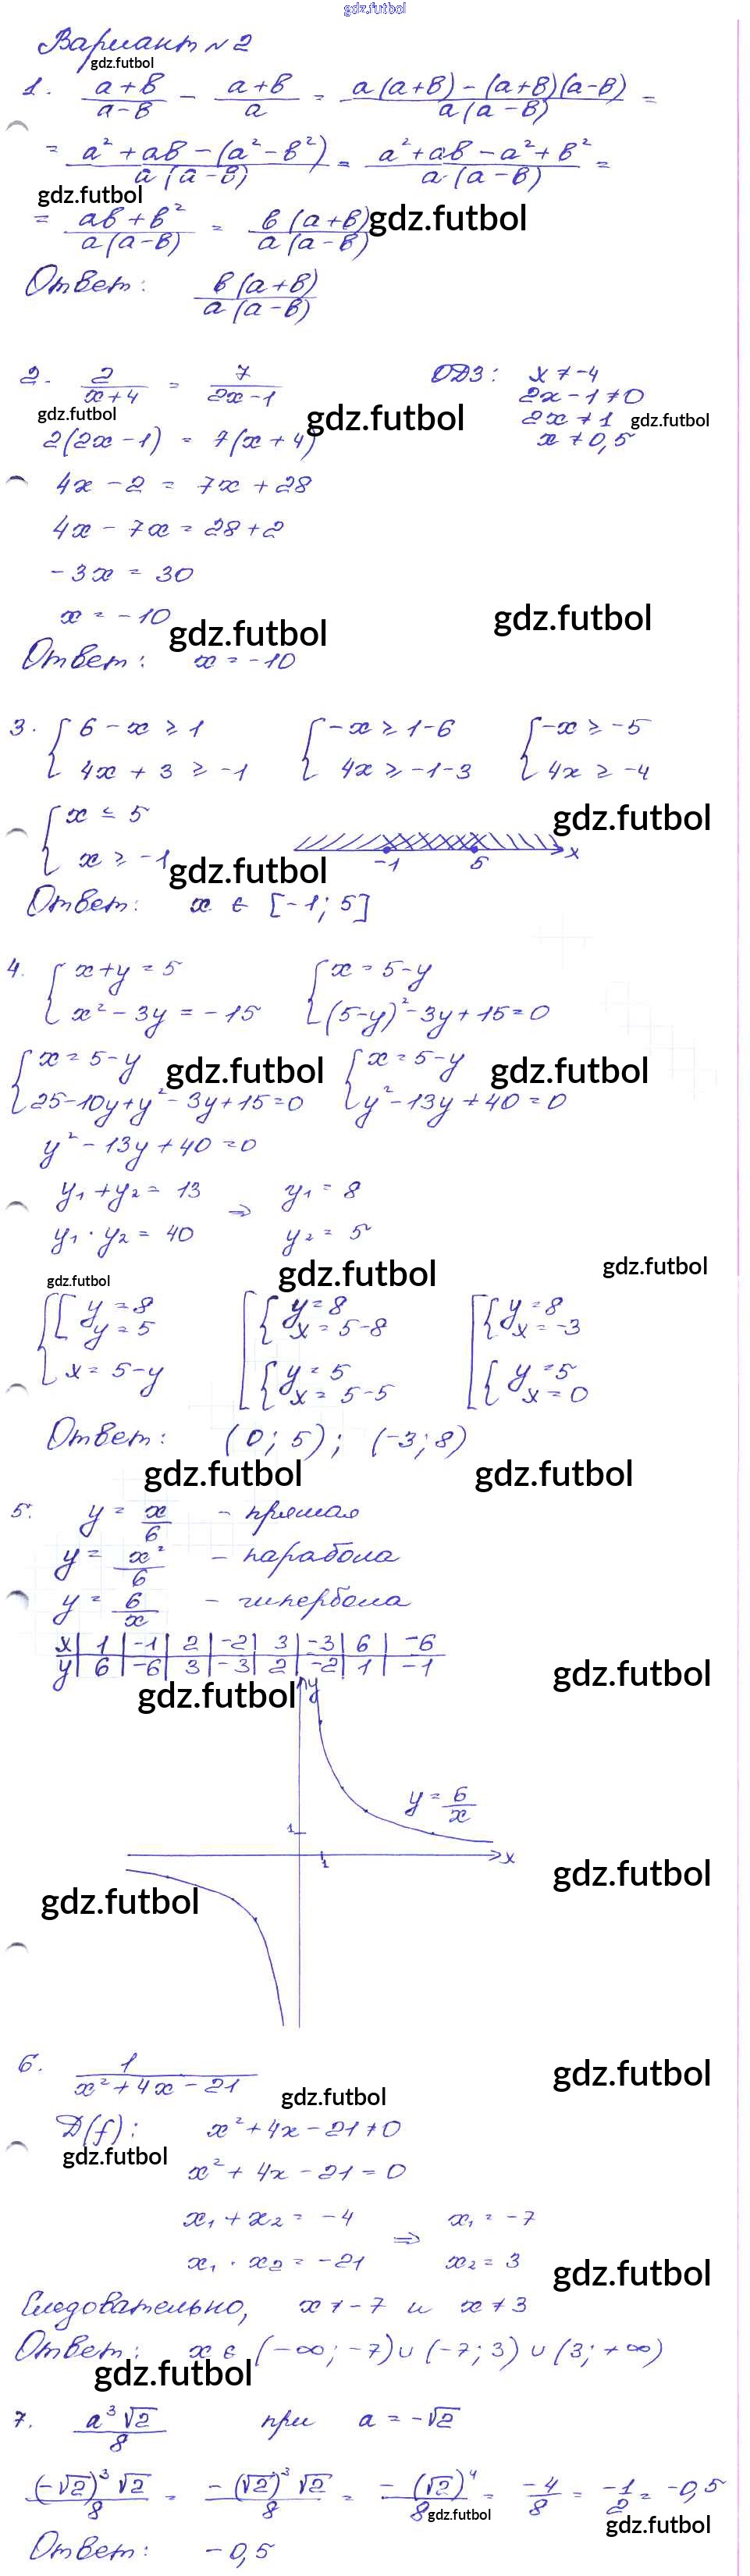 gdz.futbol
Вариант №2
gdz.futbol
1. (a+b)/(a-b) - (a+b)/a = (a(a+b)-(a+b)(a-b))/(a(a-b)) =
= (a²+ab-(a²-b²))/(a(a-b)) = (a²+ab-a²+b²)/(a·(a-b)) =
gdz.futbol
= (ab+b²)/(a(a-b)) = (b(a+b))/(a(a-b)) gdz.futbol
Ответ: (b(a+b))/(a(a-b))
2. 2/(x+4) = 7/(2x-1) ОДЗ: x≠-4
2x-1≠0
gdz.futbol gdz.futbol 2x≠1 gdz.futbol
2(2x-1) = 7(x+4) x≠0,5
4x-2 = 7x+28
4x-7x=28+2
-3x = 30
x = -10
gdz.futbol gdz.futbol
Ответ: x = -10
3. { 6-x ≥ 1 { -x ≥ 1-6 { -x ≥ -5
4x+3 ≥ -1 4x ≥ -1-3 4x ≥ -4
{ x ≤ 5 gdz.futbol
x ≥ -1 gdz.futbol -1 5 x
Ответ: x ∈ [-1; 5]
4. { x+y=5 { x=5-y
x²-3y=-15 (5-y)²-3y+15=0
{ x=5-y gdz.futbol { x=5-y gdz.futbol
25-10y+y²-3y+15=0 y²-13y+40=0
y²-13y+40=0
y₁+y₂=13 ⇒ y₁=8
y₁·y₂=40 y₂=5
gdz.futbol gdz.futbol gdz.futbol
{ [ y=8 [ { y=8 [ { y=8
y=5 x=5-8 x=-3
x=5-y { y=5 { y=5
x=5-5 x=0
Ответ: (0; 5); (-3; 8)
gdz.futbol gdz.futbol
5. y = x/6 - прямая
y = x²/6 - парабола
y = 6/x - гипербола
x | 1 | -1 | 2 | -2 | 3 | -3 | 6 | -6
y | 6 | -6 | 3 | -3 | 2 | -2 | 1 | -1
gdz.futbol y gdz.futbol
y = 6/x
1
1 x
gdz.futbol
gdz.futbol
6. 1/(x²+4x-21) gdz.futbol
gdz.futbol
D(f): x²+4x-21≠0
gdz.futbol
x²+4x-21=0
x₁+x₂=-4 ⇒ x₁=-7
x₁·x₂=-21 x₂=3 gdz.futbol
Следовательно, x≠-7 и x≠3
Ответ: x ∈ (-∞; -7)∪(-7; 3)∪(3; +∞)
gdz.futbol
7. (a³√2)/8 при a = -√2
((-√2)³√2)/8 = (-(√2)³√2)/8 = (-(√2)⁴)/8 = -4/8 = -1/2 = -0,5
gdz.futbol gdz.futbol
Ответ: -0,5